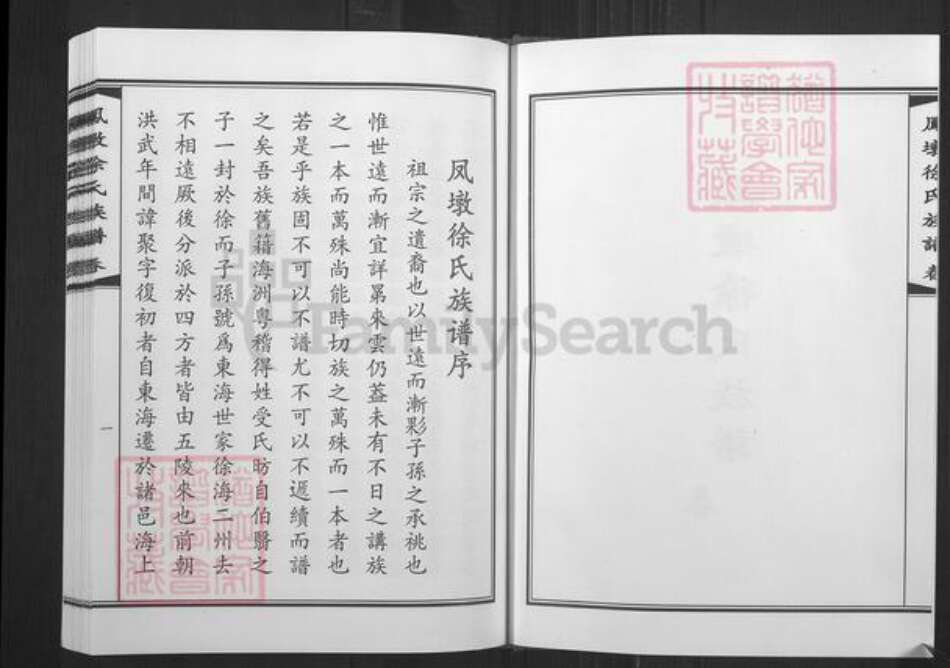 凤墩徐氏族谱序
祖宗之遺裔也以世遠而漸彰子孫之承祧也
惟世遠而漸宜詳累來雲仍葢未有不日之講族
之一本而萬殊尚能時切族之萬殊而一本者也
若是乎族固不可以不譜尤不可以不遞續而譜
之矣吾族舊籍海洲粤稽得姓受氏昉自伯翳之
子一封於徐而子孫號爲東海世家徐海二州去
不相遠厥後分派於四方者皆由五陵來也前朝
洪武年間諱聚字復初者自東海遷於諸邑海上
一
FamilySearch